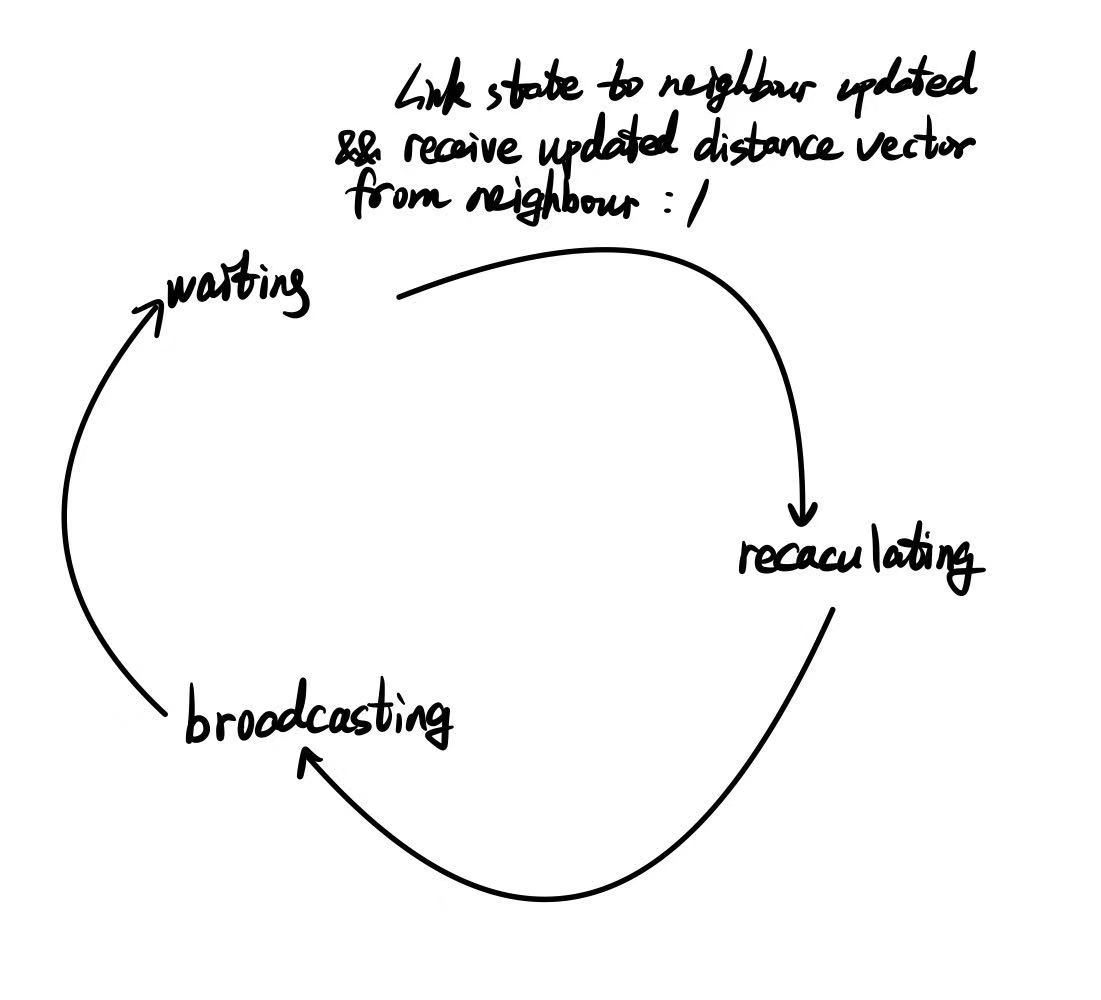 Link state to neighbour updated
&& receive updated distance vector
from neighbour : /
waiting
recaculating
broadcasting